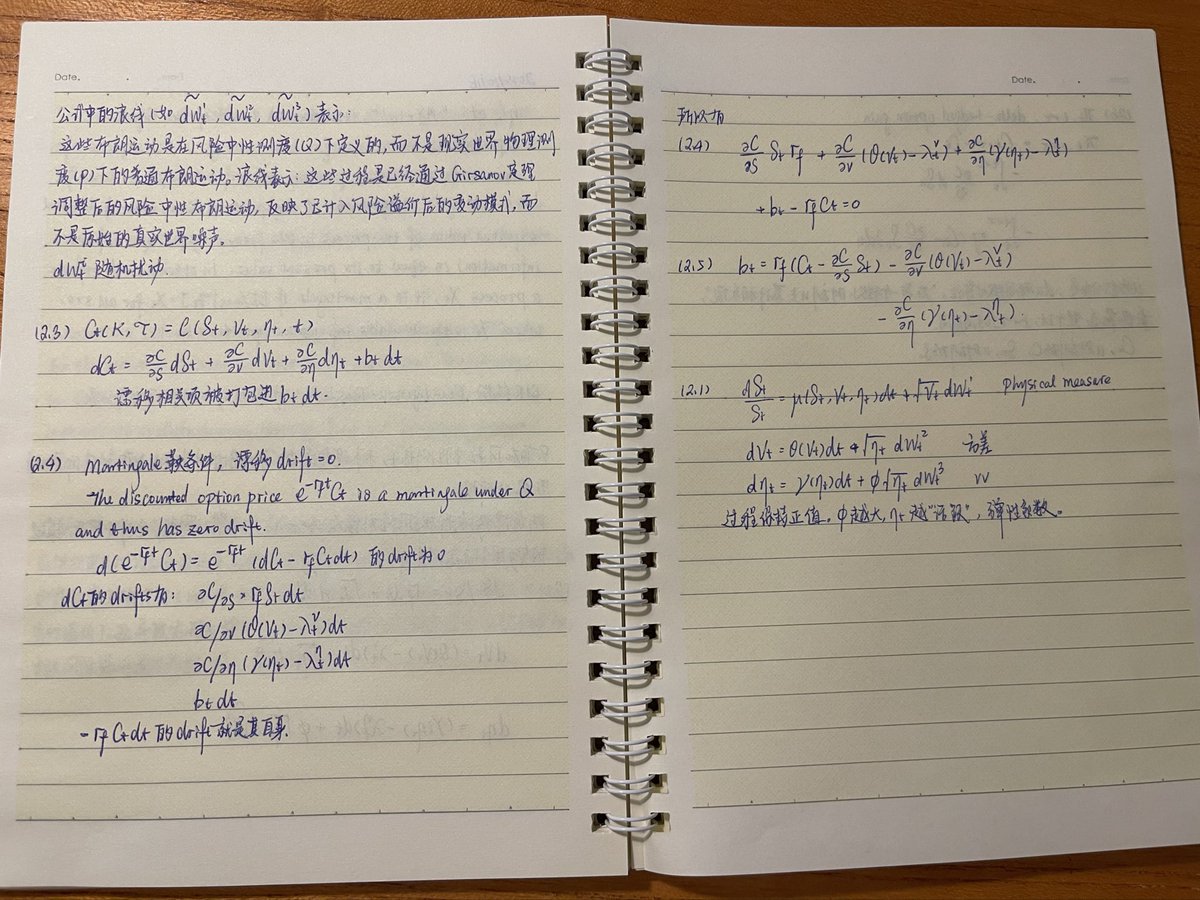 Date.
公式中的浪线(如 d̃W_t^1, d̃W_t^2, d̃W_t^3)表示:
这些布朗运动是在风险中性测度(Q)下定义的,而不是现实世界物理测
度(P)下的普通布朗运动。浪线表示:这些过程是已经通过Girsanov定理
调整后的风险中性布朗运动,反映了已计入风险溢价后的变动模式,而
不是原始的真实世界噪声。
随机扰动
(2.3) C_t(K,τ) = C(S_t, V_t, η_t, t)
dC_t = ∂C/∂S dS_t + ∂C/∂V dV_t + ∂C/∂η dη_t + b_t dt
漂移相关项被打包进 b_t dt.
(2.4) Martingale 鞅条件, 漂移 drift=0.
The discounted option price e^{-r_f t}C_t is a martingale under Q
and thus has zero drift.
d(e^{-r_f t}C_t) = e^{-r_f t}(dC_t - r_f C_t dt) 的drift为0
dC_t的drifts有: ∂C/∂S × r_f S_t dt
∂C/∂V (θ(V_t) - λ_t^V)dt
∂C/∂η (γ(η_t) - λ_t^η)dt
b_t dt
- r_f C_t dt 的drift就是其自身.
Date.
所以有
(2.4) ∂C/∂S S_t r_f + ∂C/∂V (θ(V_t) - λ_t^V) + ∂C/∂η (γ(η_t) - λ_t^η)
+ b_t - r_f C_t = 0
(2.5) b_t = r_f (C_t - ∂C/∂S S_t) - ∂C/∂V (θ(V_t) - λ_t^V)
- ∂C/∂η (γ(η_t) - λ_t^η)
(2.1) dS_t/S_t = μ(S_t, V_t, η_t)dt + √V_t dW_t^1 Physical measure
dV_t = θ(V_t)dt + √η_t dW_t^2 方差
dη_t = γ(η_t)dt + φ√η_t dW_t^3 VV
过程保持正值。φ越大, η_t越“活跃”, 弹性系数。